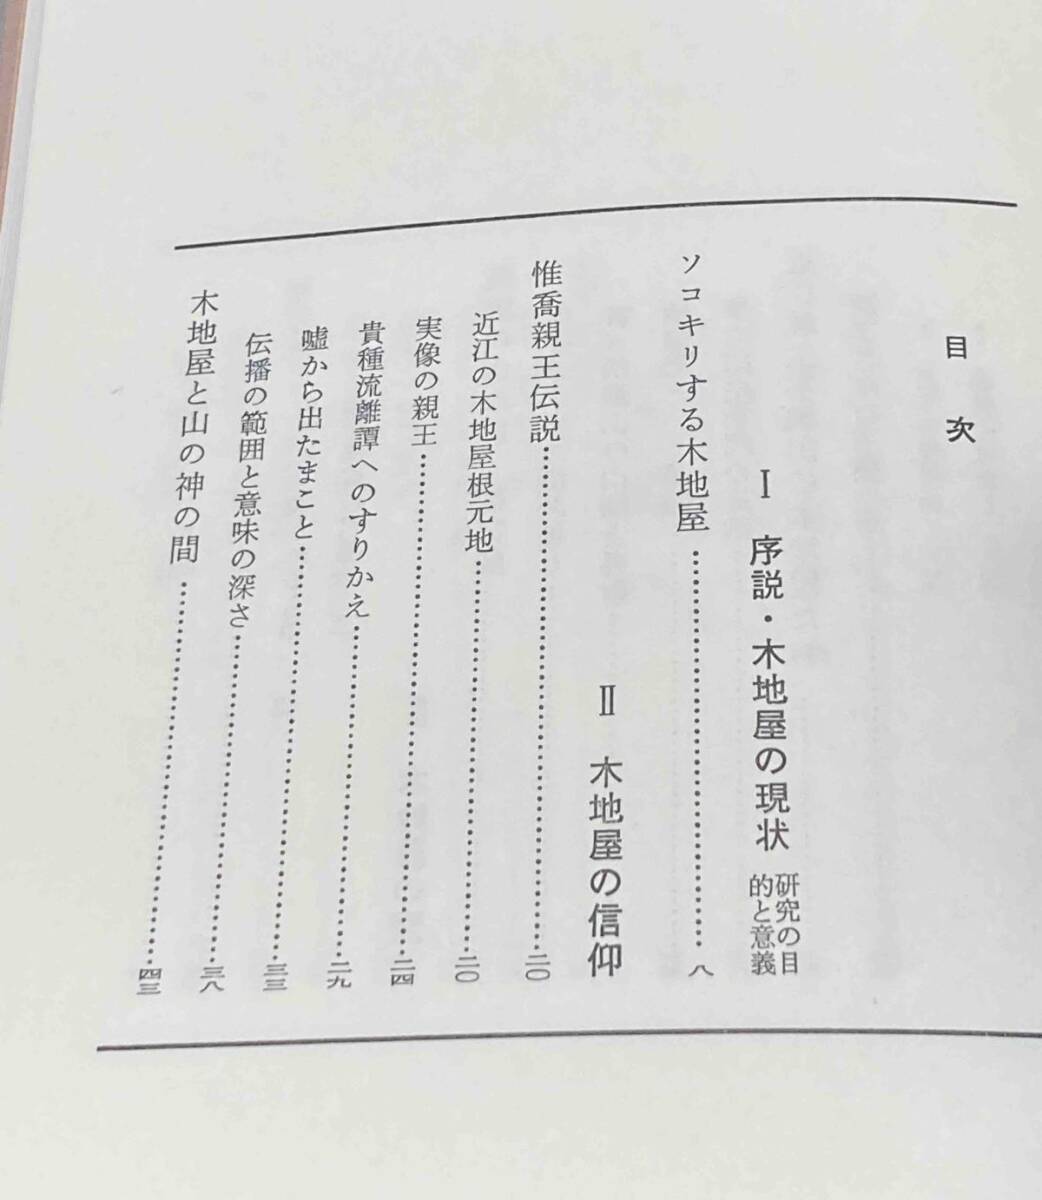 目次
Ⅰ 序説・木地屋の現状 研究の目的と意義
ソコキリする木地屋……八
Ⅱ 木地屋の信仰
惟喬親王伝説……二〇
近江の木地屋根元地……二〇
実像の親王……二四
貴種流離譚へのすりかえ……二九
嘘から出たまこと……三三
伝播の範囲と意味の深さ……三八
木地屋と山の神の間……四三